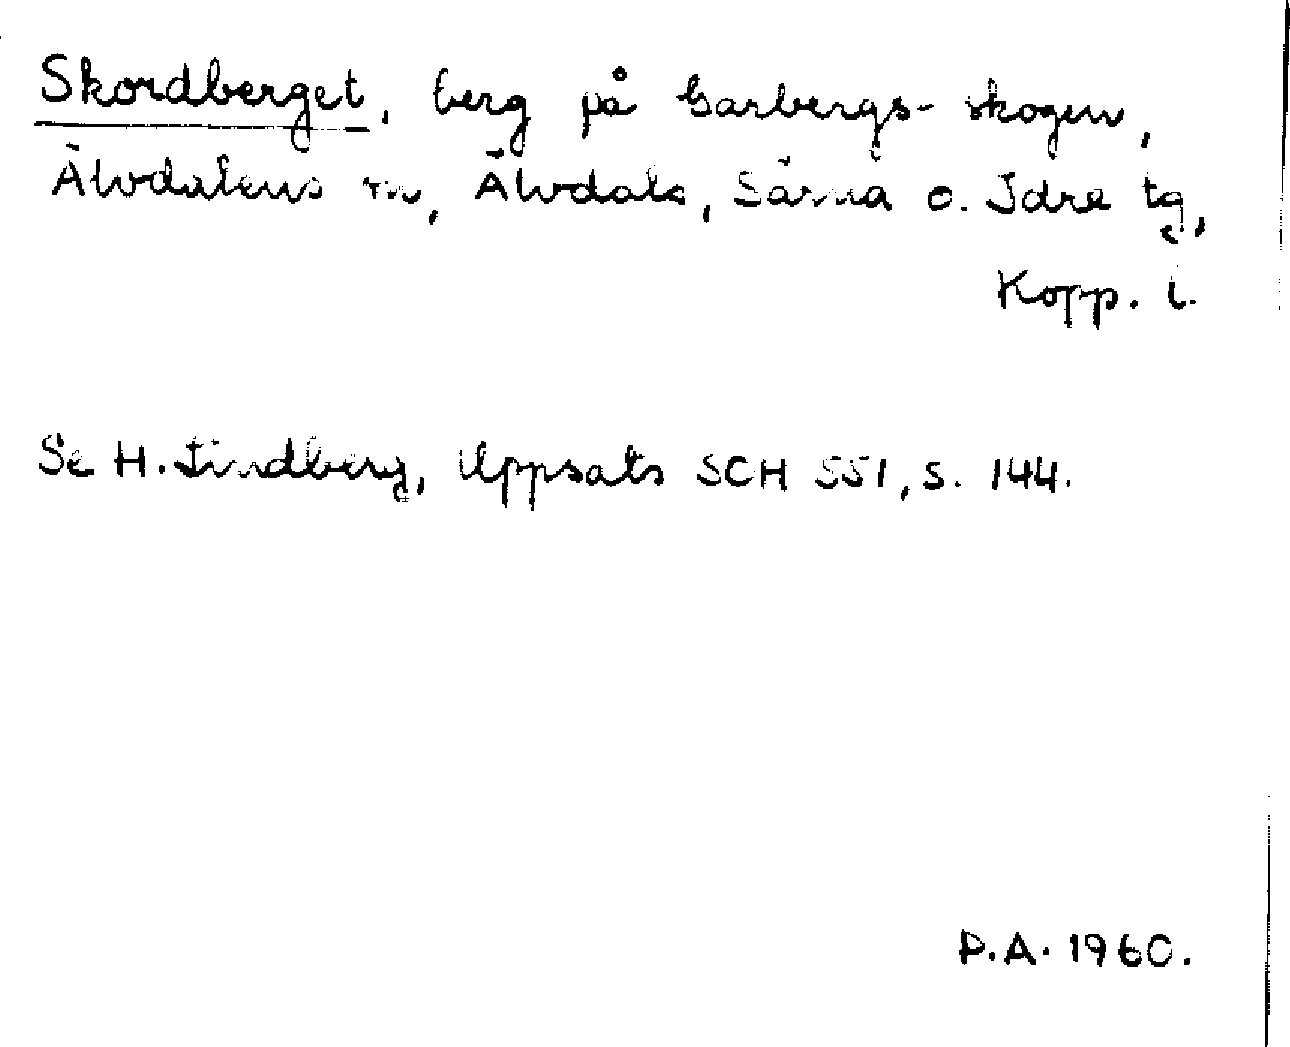 Skordberget, berg på Garbergs-skogen,
Älvdalens sn, Älvdals, Särna o. Idre tg,
Kopp. l.
Se H. Lindberg, Uppsats SCH 551, s. 144.
P.A. 1960.